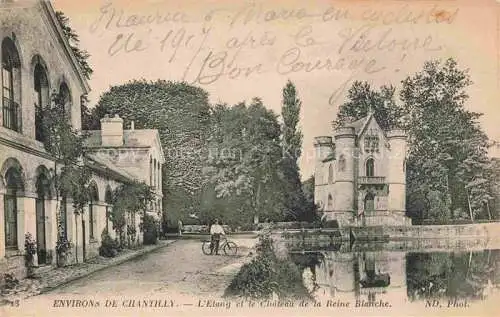 Maurice & Marie en cyclistes
Été 1917 après la Victoire
Bon Courage
13 ENVIRONS DE CHANTILLY. — L'Etang et le Château de la Reine Blanche. ND. Phot.